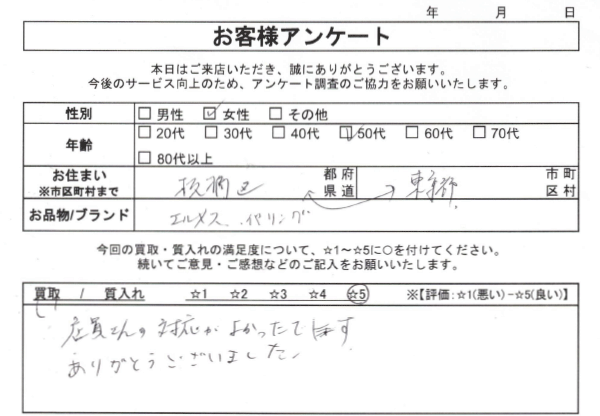 年 月 日
お客様アンケート
本日はご来店いただき、誠にありがとうございます。
今後のサービス向上のため、アンケート調査のご協力をお願いいたします。
性別 □ 男性 ☑ 女性 □ その他
年齢 □ 20代 □ 30代 □ 40代 ☑ 50代 □ 60代 □ 70代
□ 80代以上
お住まい 板橋区 都府 東京都 市町
※市区町村まで 県道 区村
お品物/ブランド エルメス、イヤリング
今回の買取・質入れの満足度について、☆1～☆5に○を付けてください。
続いてご意見・ご感想などのご記入をお願いいたします。
買取 / 質入れ ☆1 ☆2 ☆3 ☆4 ☆5 ※【評価:☆1(悪い)-☆5(良い)】
店員さんの対応がよかったです
ありがとうございました